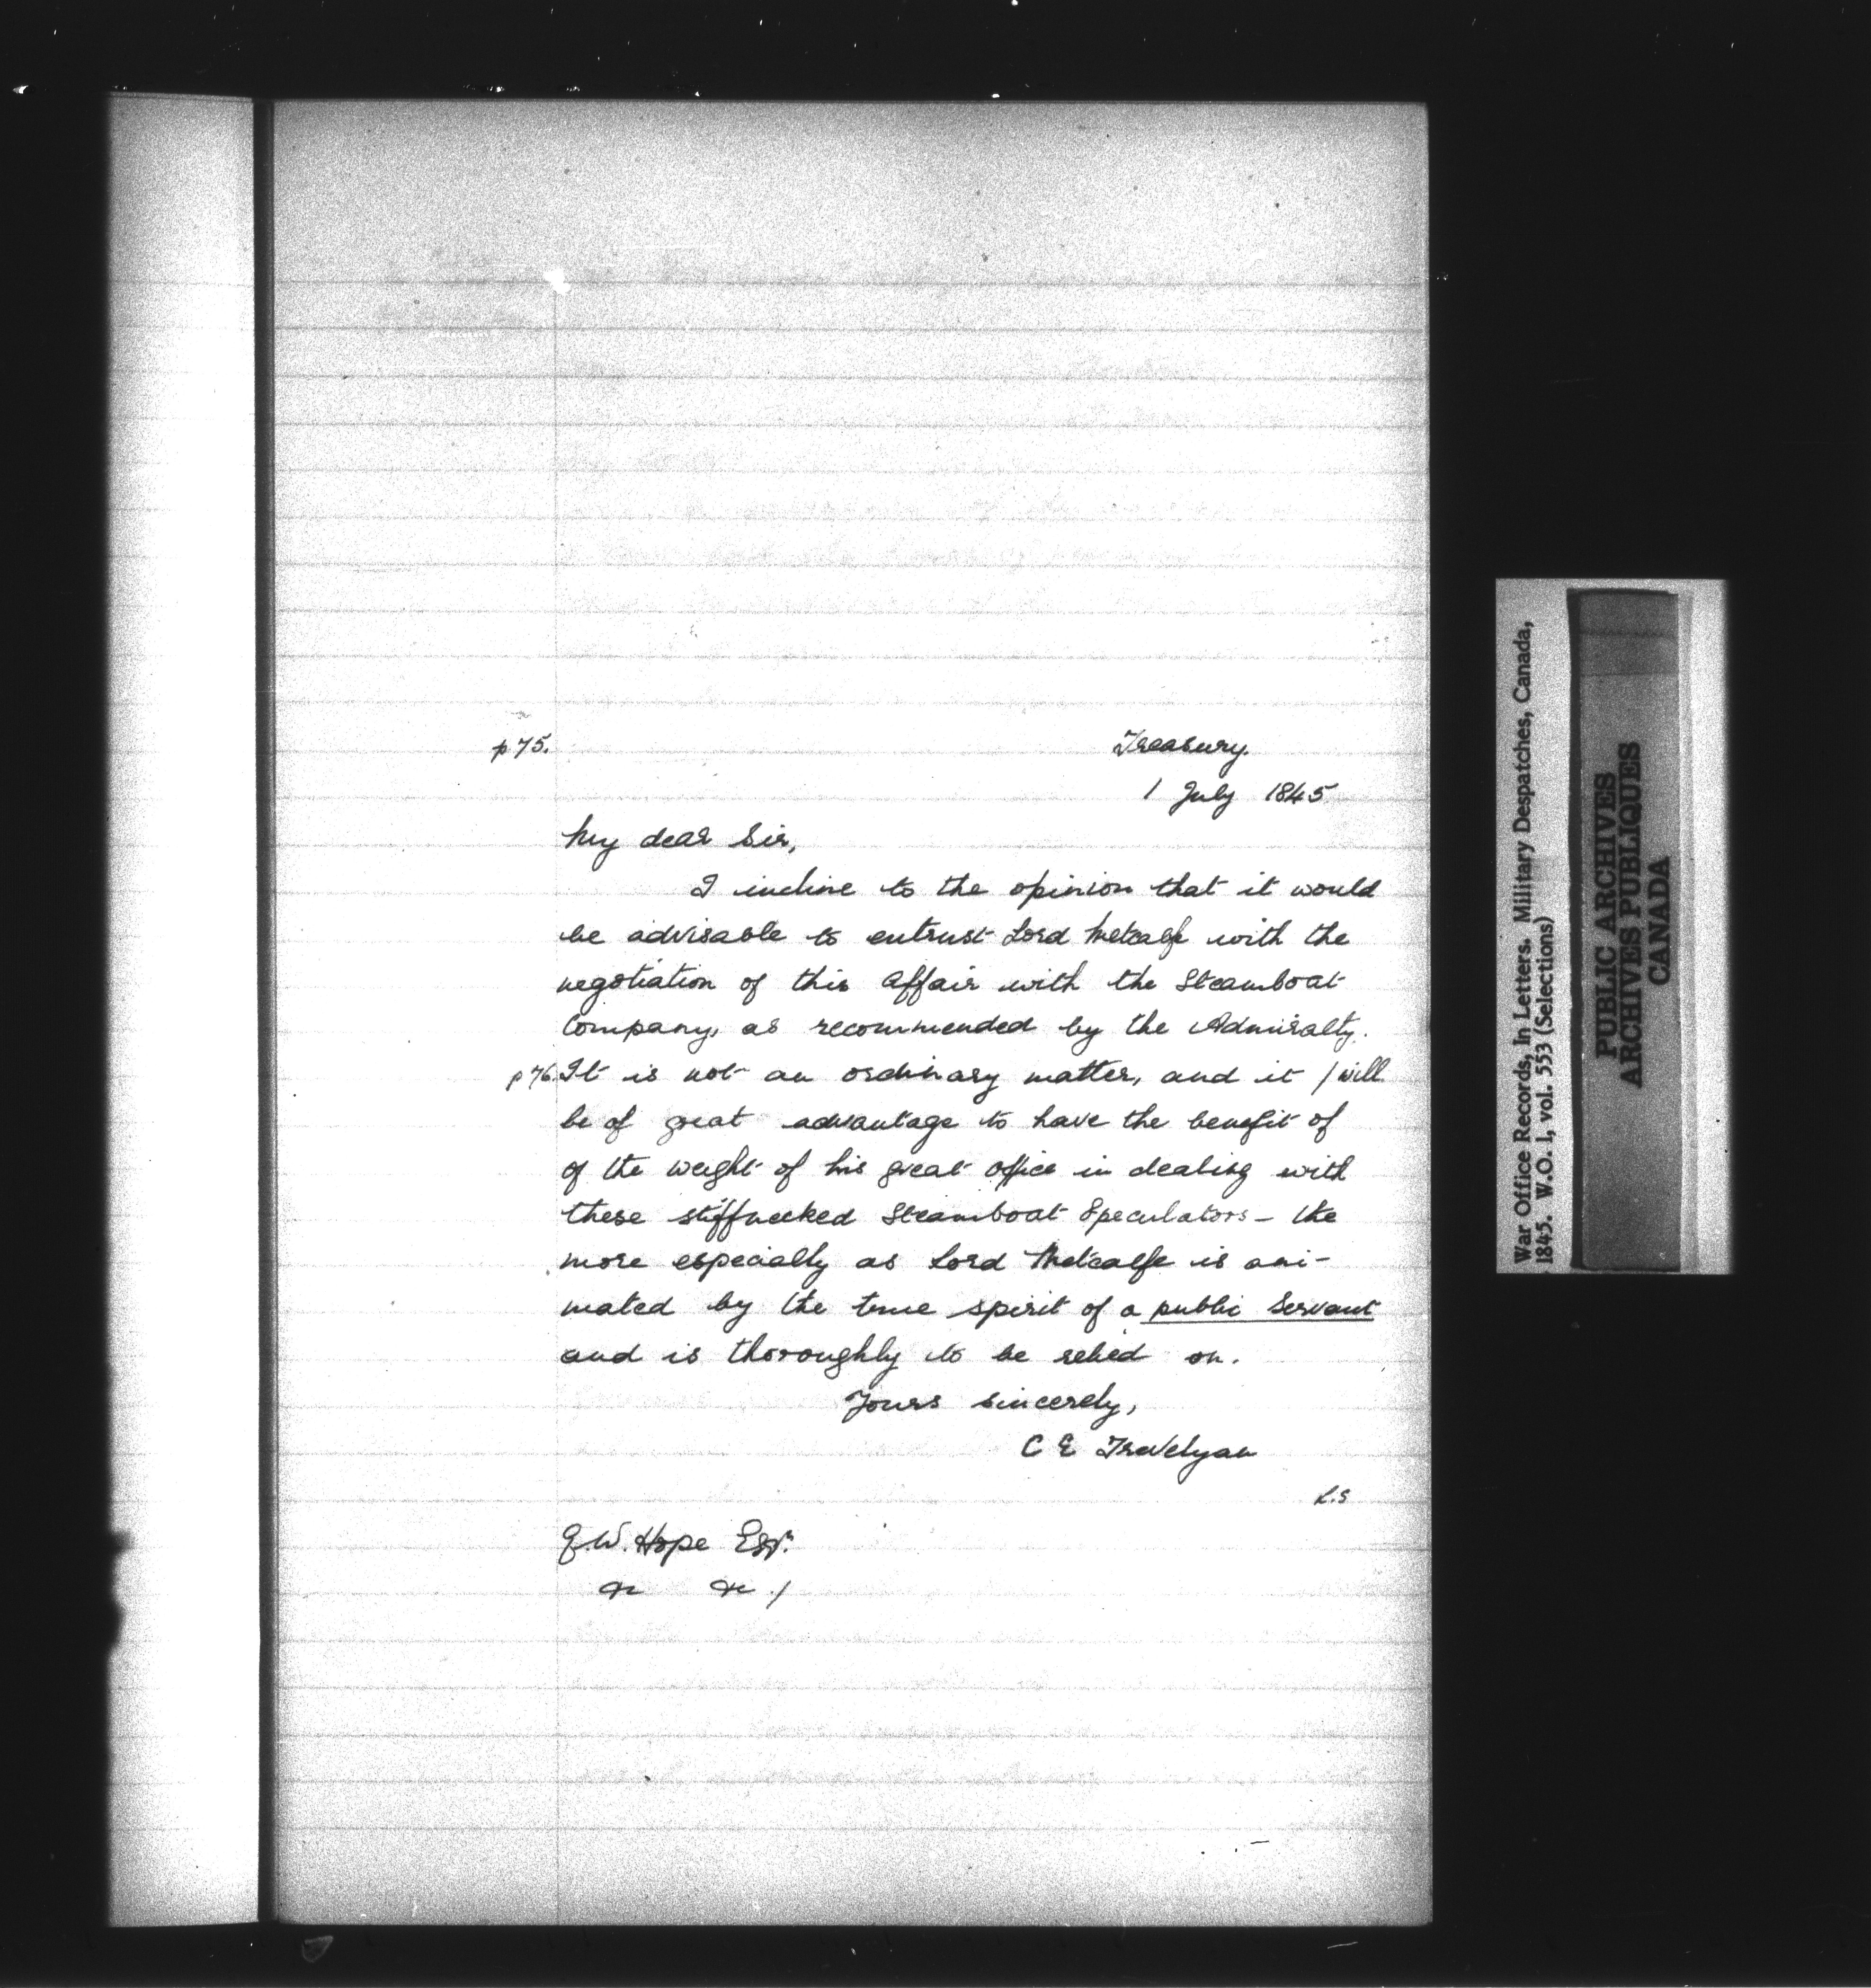 p 75.
Treasury.
1 July 1845
My dear Sir,
I incline to the opinion that it would
be advisable to entrust Lord Metcalfe with the
negotiation of this affair with the Steamboat
Company, as recommended by the Admiralty.
p 76. It is not an ordinary matter, and it / will
be of great advantage to have the benefit of
of the weight of his great office in dealing with
these stiffnecked Steamboat Speculators – the
more especially as Lord Metcalfe is ani-
mated by the true spirit of a public Servant
and is thoroughly to be relied on.
Yours sincerely,
C E Trevelyan
L.S
G.W. Hope Esqr.
&c &c /
War Office Records, In Letters. Military Despatches, Canada,
1845. W.O. 1, vol. 553 (Selections)
PUBLIC ARCHIVES
ARCHIVES PUBLIQUES
CANADA